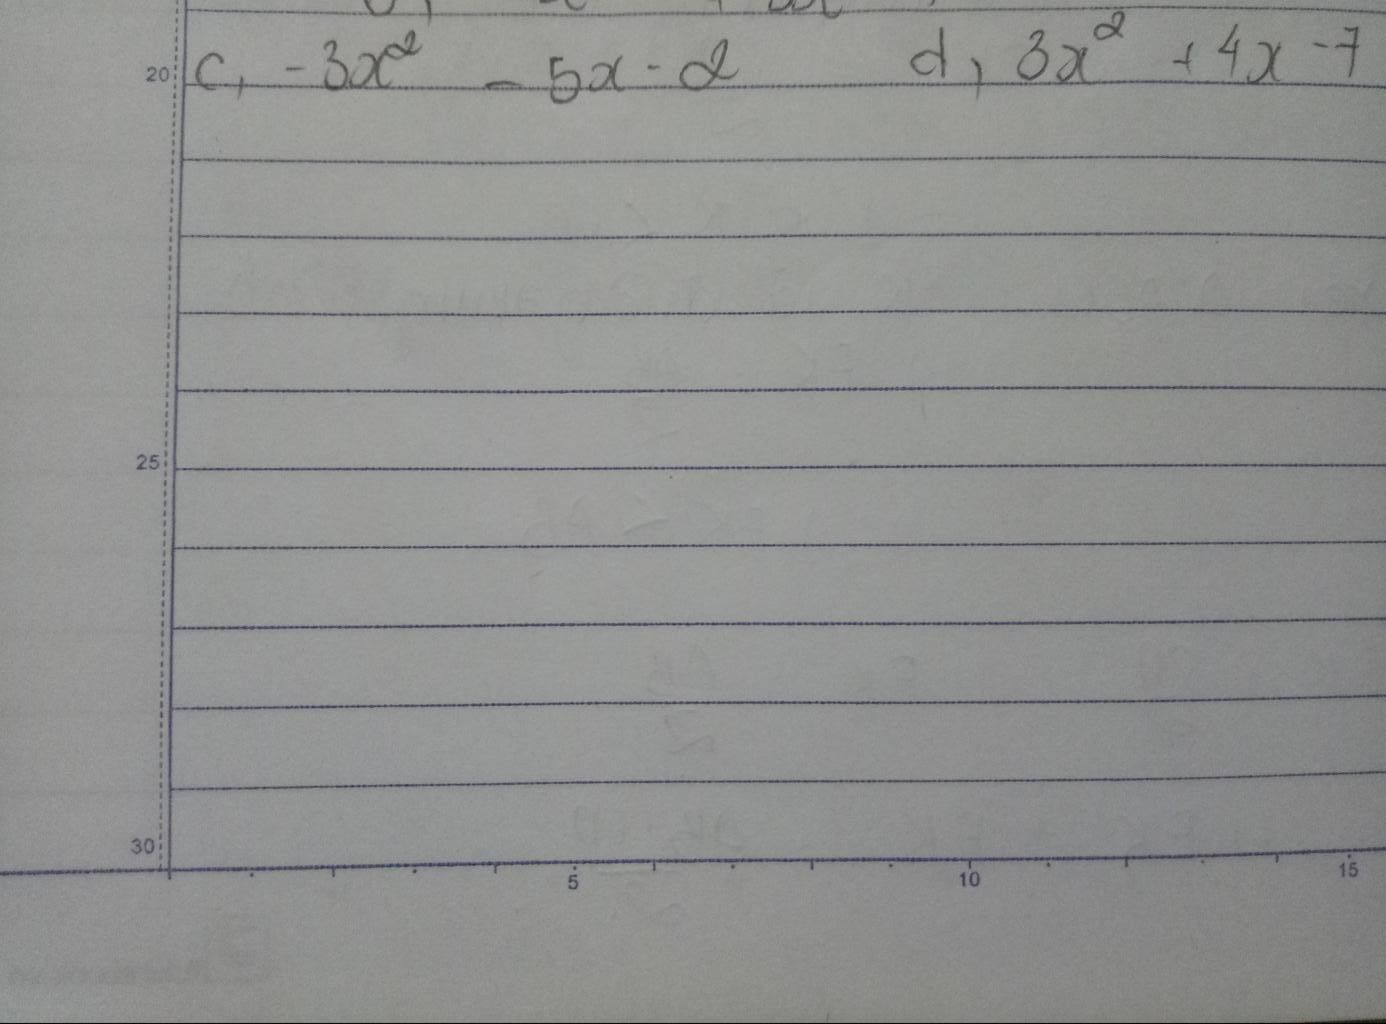 20 c, -3x² - 5x - 2 d, 3x² + 4x - 7
25
30
5 10 15